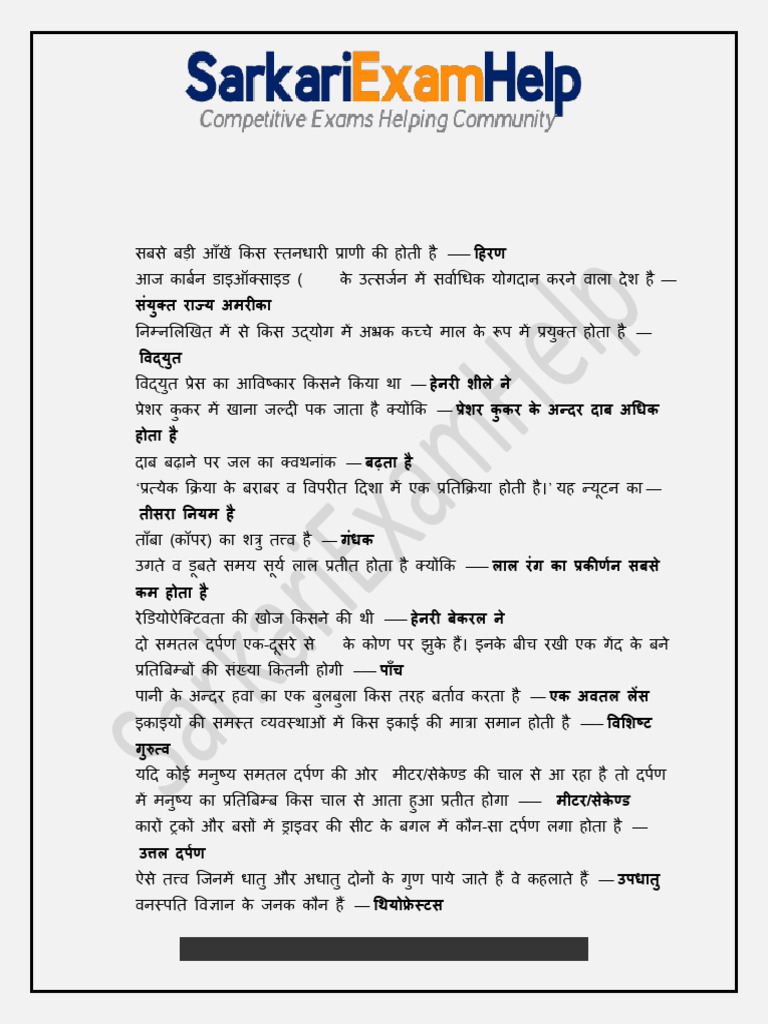 SarkariExamHelp
Competitive Exams Helping Community
सबसे बड़ी आँखें किस स्तनधारी प्राणी की होती है —– हिरण
आज कार्बन डाइऑक्साइड ( के उत्सर्जन में सर्वाधिक योगदान करने वाला देश है —
संयुक्त राज्य अमरीका
निम्नलिखित में से किस उद्योग में अभ्रक कच्चे माल के रूप में प्रयुक्त होता है —
विद्युत
विद्युत प्रेस का आविष्कार किसने किया था — हेनरी शीले ने
प्रेशर कुकर में खाना जल्दी पक जाता है क्योंकि — प्रेशर कुकर के अन्दर दाब अधिक
होता है
दाब बढ़ाने पर जल का क्वथनांक — बढ़ता है
‘प्रत्येक क्रिया के बराबर व विपरीत दिशा में एक प्रतिक्रिया होती है।’ यह न्यूटन का —
तीसरा नियम है
ताँबा (कॉपर) का शत्रु तत्त्व है — गंधक
उगते व डूबते समय सूर्य लाल प्रतीत होता है क्योंकि —– लाल रंग का प्रकीर्णन सबसे
कम होता है
रेडियोऐक्टिवता की खोज किसने की थी — हेनरी बेकरल ने
दो समतल दर्पण एक-दूसरे से के कोण पर झुके हैं। इनके बीच रखी एक गेंद के बने
प्रतिबिम्बों की संख्या कितनी होगी —– पाँच
पानी के अन्दर हवा का एक बुलबुला किस तरह बर्ताव करता है — एक अवतल लेंस
इकाइयों की समस्त व्यवस्थाओं में किस इकाई की मात्रा समान होती है —– विशिष्ट
गुरुत्व
यदि कोई मनुष्य समतल दर्पण की ओर मीटर/सेकेण्ड की चाल से आ रहा है तो दर्पण
में मनुष्य का प्रतिबिम्ब किस चाल से आता हुआ प्रतीत होगा —– मीटर/सेकेण्ड
कारों ट्रकों और बसों में ड्राइवर की सीट के बगल में कौन-सा दर्पण लगा होता है —
उत्तल दर्पण
ऐसे तत्त्व जिनमें धातु और अधातु दोनों के गुण पाये जाते हैं वे कहलाते हैं — उपधातु
वनस्पति विज्ञान के जनक कौन हैं — थियोफ्रेस्टस
SarkariExamHelp